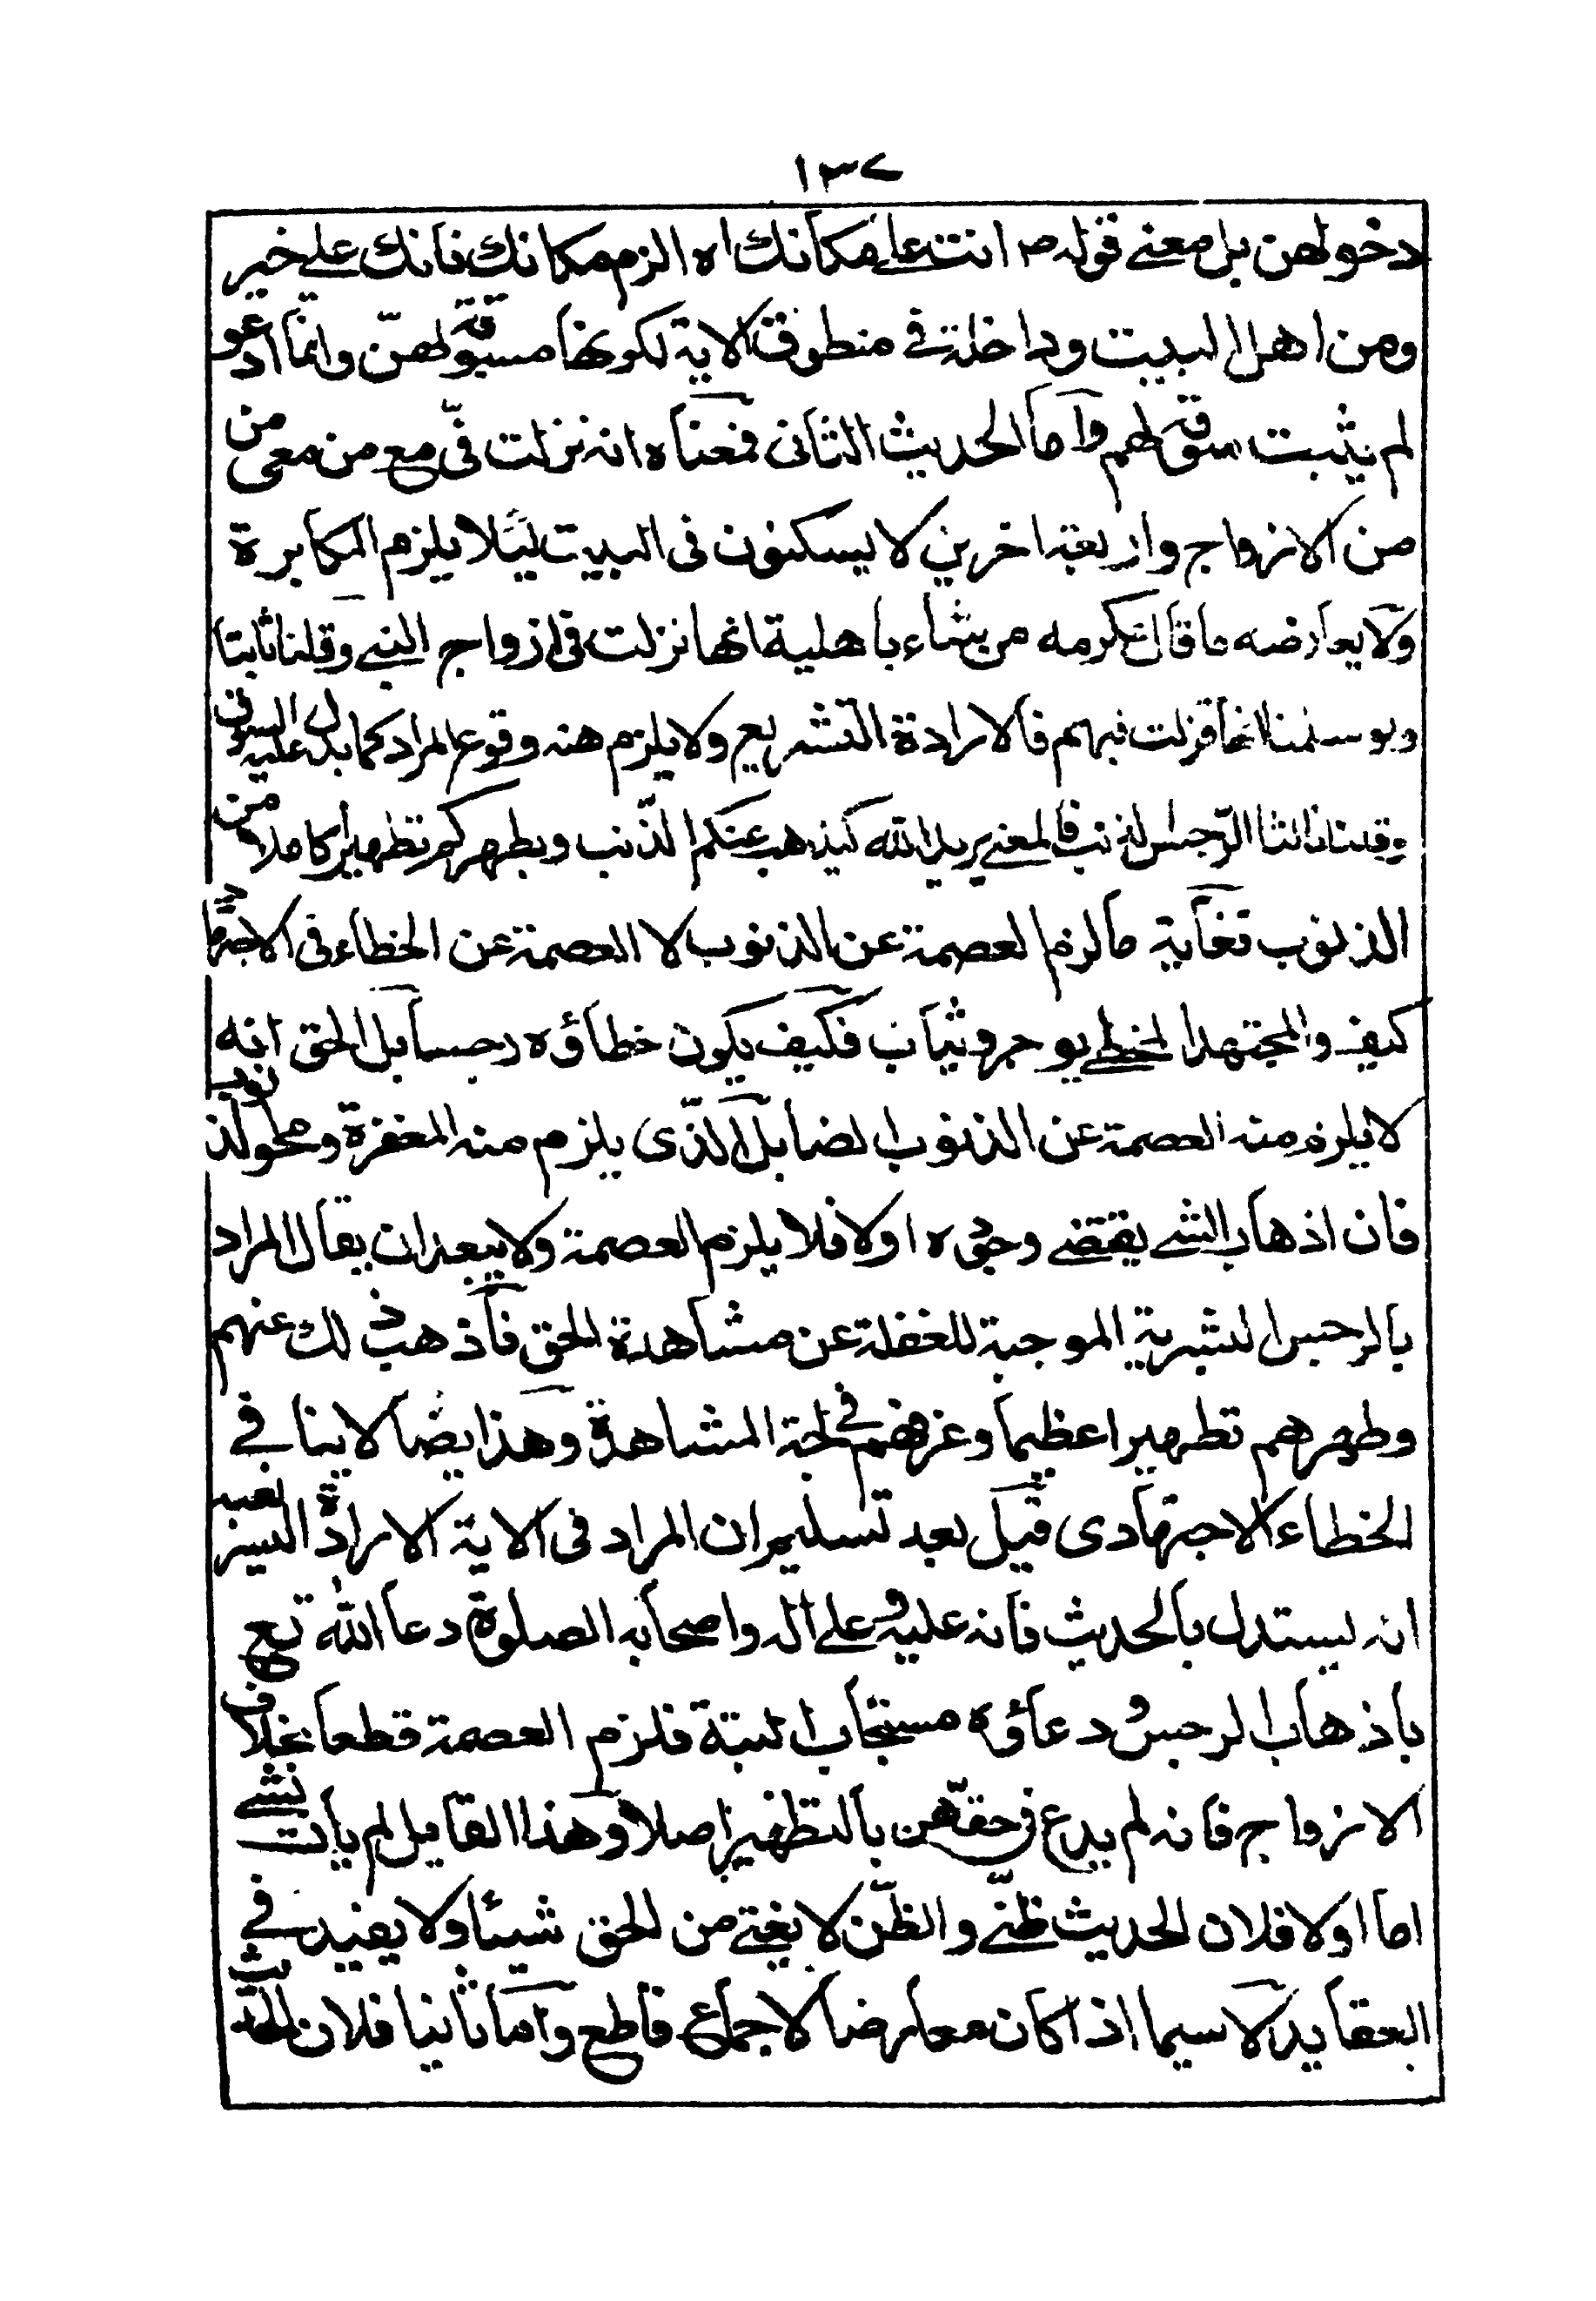 ١٣٧
دخولهن بل معنى قوله ص انت على مكانك اه الزم مكانك فانك على خير
ومن اهل البيت وداخلة فى منطوق الاية لكونها مسبوقة لهنّ وانما ادعو
لم يثبت سوقة لهم وآما الحديث الثانى فمعناه انه نزلت فىّ مع من معى من
من الازواج واربعة اخرين لا يسكنون فى البيت لئلا يلزم المكابرة
ولا يعارضه ما قال عكرمه من يشاء باهلية انها نزلت فى ازواج النبى وقلنا ثانيا
ولو سلمنا انها نزلت فيهم فالارادة التشريع ولا يلزم منه وقوع المراد كما يدل عليه السوق
وقلنا ثالثا الرّجس الذنب فالمعنى يريد الله ليذهب عنكم الذّنب ويطهركم تطهيرا كاملا من
الذنوب فغاية ما لزم العصمة عن الذنوب لا العصمة عن الخطاء فى الاجتهاد
كيف والمجتهد المخطى يوجر ويثاب فكيف يكون خطاؤه رجسا بل الحق انه
لا يلزم منه العصمة عن الذنوب ايضا بل الذّى يلزم منه المغفرة ومحو الذنوب
فان اذهاب الشى يقتضى وجوده اولا فلا يلزم العصمة ولا يبعد ان يقال المراد
بالرجس البشرية الموجبة للغفلة عن مشاهدة الحق فاذهب ذلك عنهم
وطهرهم تطهيرا عظيما وغرقهم فى لجة المشاهدة وهذا ايضا لا ينافى
الخطاء الاجتهادى قيل بعد تسليم ان المراد فى الاية الارادة التشريعية
انه يستدل بالحديث فانه عليه وعلى اله واصحابه الصلوة دعا الله تع
باذهاب الرجس ودعاؤه مستجاب البتة فلزم العصمة قطعا بخلاف
الازواج فانه لم يدع فى حقهن بالتطهير اصلا وهذا القايل لم يات بشى
اما اولا فلان الحديث ظنّى والظّن لا يغنى من الحق شيئا ولا يفيد فى
العقايد لا سيما اذا كان معارضا لاجماع قاطع وآما ثانيا فلان الحديث